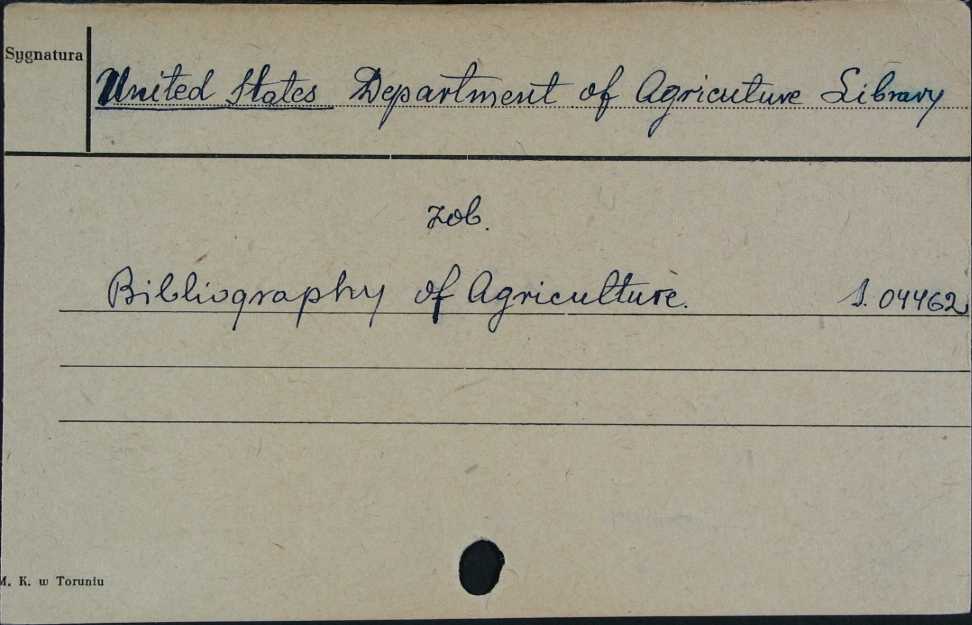 Sygnatura
United States Department of Agricuture Library
zob.
Bibliography of Agriculture. S. 04462
M. K. w Toruniu